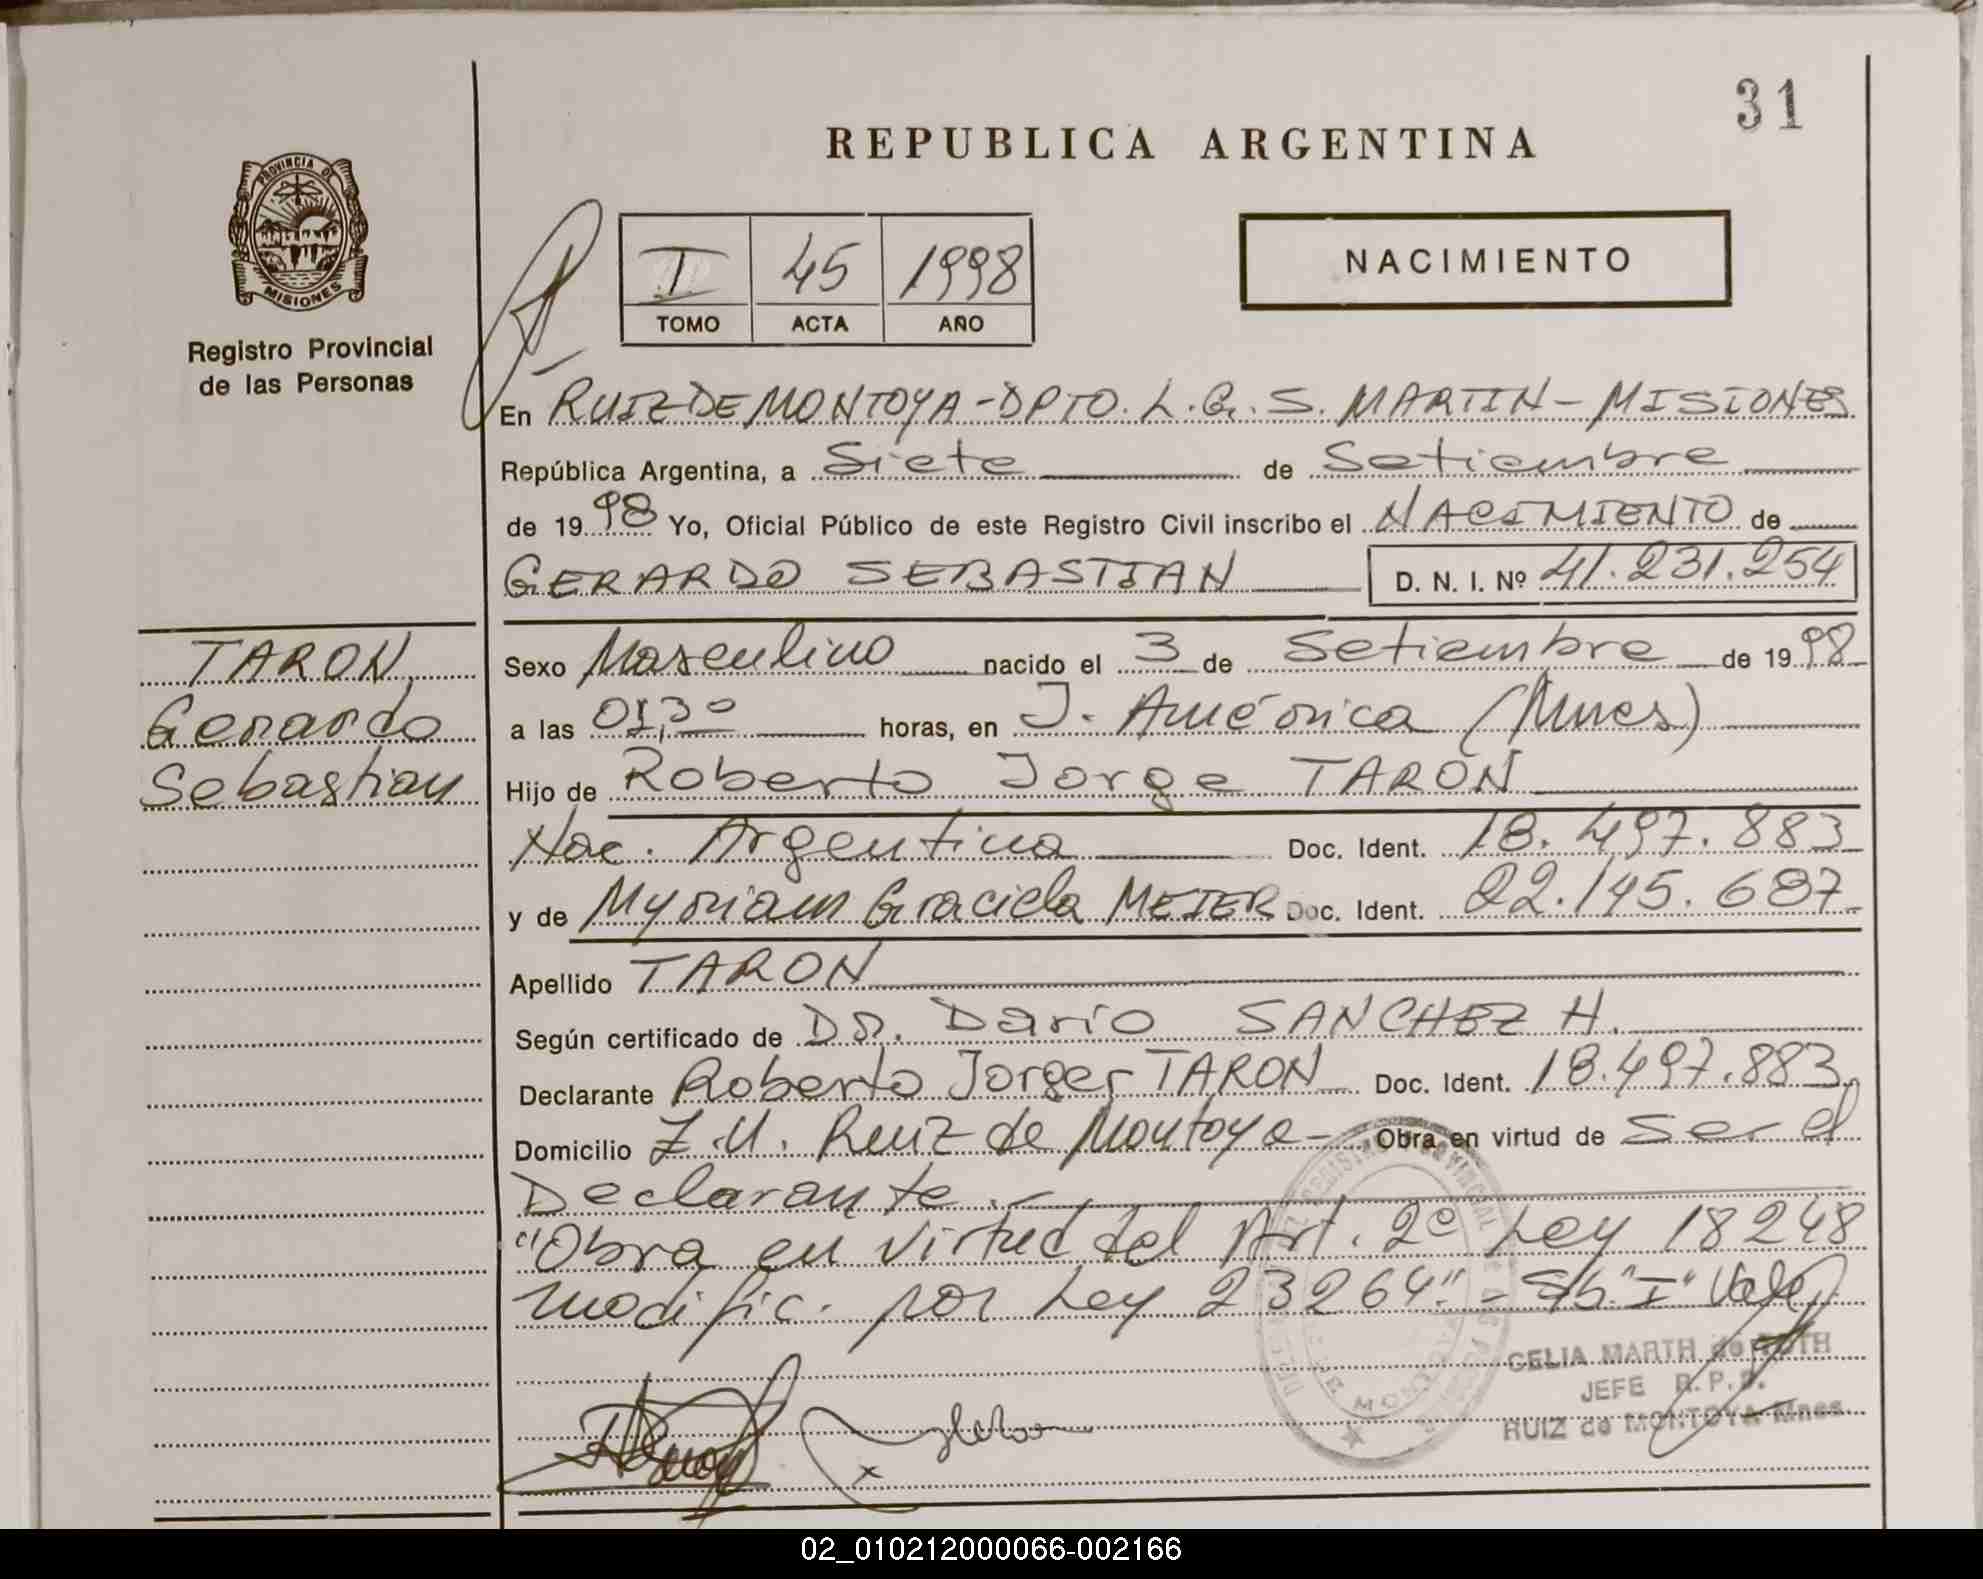 31
REPUBLICA ARGENTINA
PROVINCIA DE
MISIONES
Registro Provincial
de las Personas
I 45 1998
TOMO ACTA AÑO
NACIMIENTO
En RUIZ DE MONTOYA-DPTO. L.G.S. MARTIN-MISIONES
República Argentina, a Siete de Setiembre
de 1998 Yo, Oficial Público de este Registro Civil inscribo el NACIMIENTO de
GERARDO SEBASTIAN D. N. I. Nº 41.231.254
TARON
Gerardo
Sebastian
Sexo Masculino nacido el 3 de Setiembre de 1998
a las 01,30 horas, en J. América (Mnes)
Hijo de Roberto Jorge TARON
Nac. Argentina Doc. Ident. 18.497.883
y de Myriam Graciela MEIER Doc. Ident. 22.145.687
Apellido TARON
Según certificado de Dr. Darío SANCHEZ H.
Declarante Roberto Jorge TARON Doc. Ident. 18.497.883
Domicilio Z.U. Ruiz de Montoya- Obra en virtud de Ser el
Declarante.-
"Obra en virtud del Art. 2º Ley 18248
modific. por Ley 23264".- S/b "I" Vale
CELIA MARTH de ROTH
JEFE R.P.P.
RUIZ de MONTOYA Mnes.
02_010212000066-002166